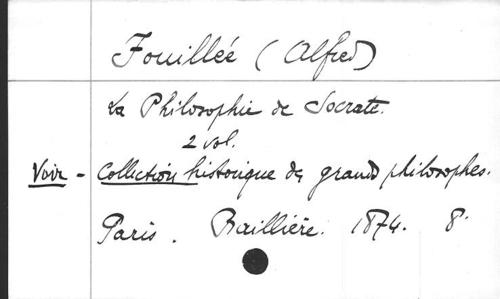 Fouillée (Alfred)
La Philosophie de Socrate.
2 vol.
Voir - Collection historique des grands philosophes.
Paris. Baillière. 1874. 8°